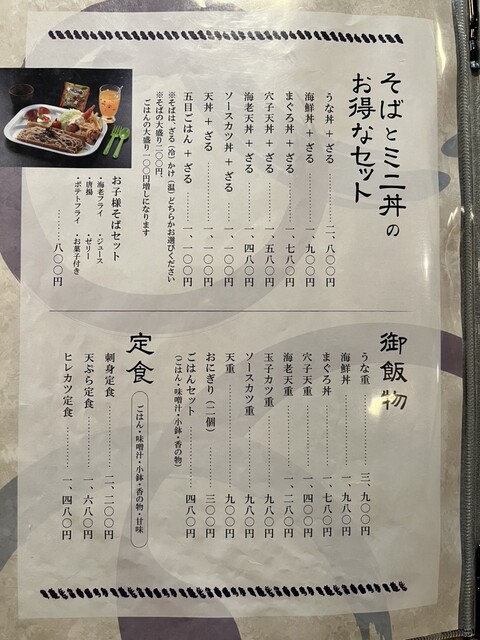 そばとミニ丼の
お得なセット
うな丼＋ざる…………二、八〇〇円
海鮮丼＋ざる…………一、九〇〇円
まぐろ丼＋ざる…………一、七八〇円
穴子天丼＋ざる…………一、五八〇円
海老天丼＋ざる…………一、四八〇円
ソースカツ丼＋ざる…………一、一〇〇円
天丼＋ざる…………一、一〇〇円
五目ごはん＋ざる…………一、一〇〇円
※そばは、ざる（冷）かけ（温）どちらかお選びください
※そばの大盛り二〇〇円、
ごはんの大盛り一〇〇円増しになります
お子様そばセット
・海老フライ ・ジュース
・唐揚 ・ゼリー
・ポテトフライ ・お菓子付き
…………八〇〇円
御飯物
うな重…………三、九〇〇円
海鮮丼…………一、九八〇円
まぐろ丼…………一、七八〇円
穴子天重…………一、四〇〇円
海老天重…………一、二八〇円
玉子カツ重…………九八〇円
ソースカツ重…………九八〇円
天重…………九〇〇円
おにぎり（二個）…………三〇〇円
ごはんセット…………四八〇円
（ごはん・味噌汁・小鉢・香の物）
定食
ごはん・味噌汁・小鉢・香の物・甘味
刺身定食…………二、二〇〇円
天ぷら定食…………一、六八〇円
ヒレカツ定食…………一、四八〇円